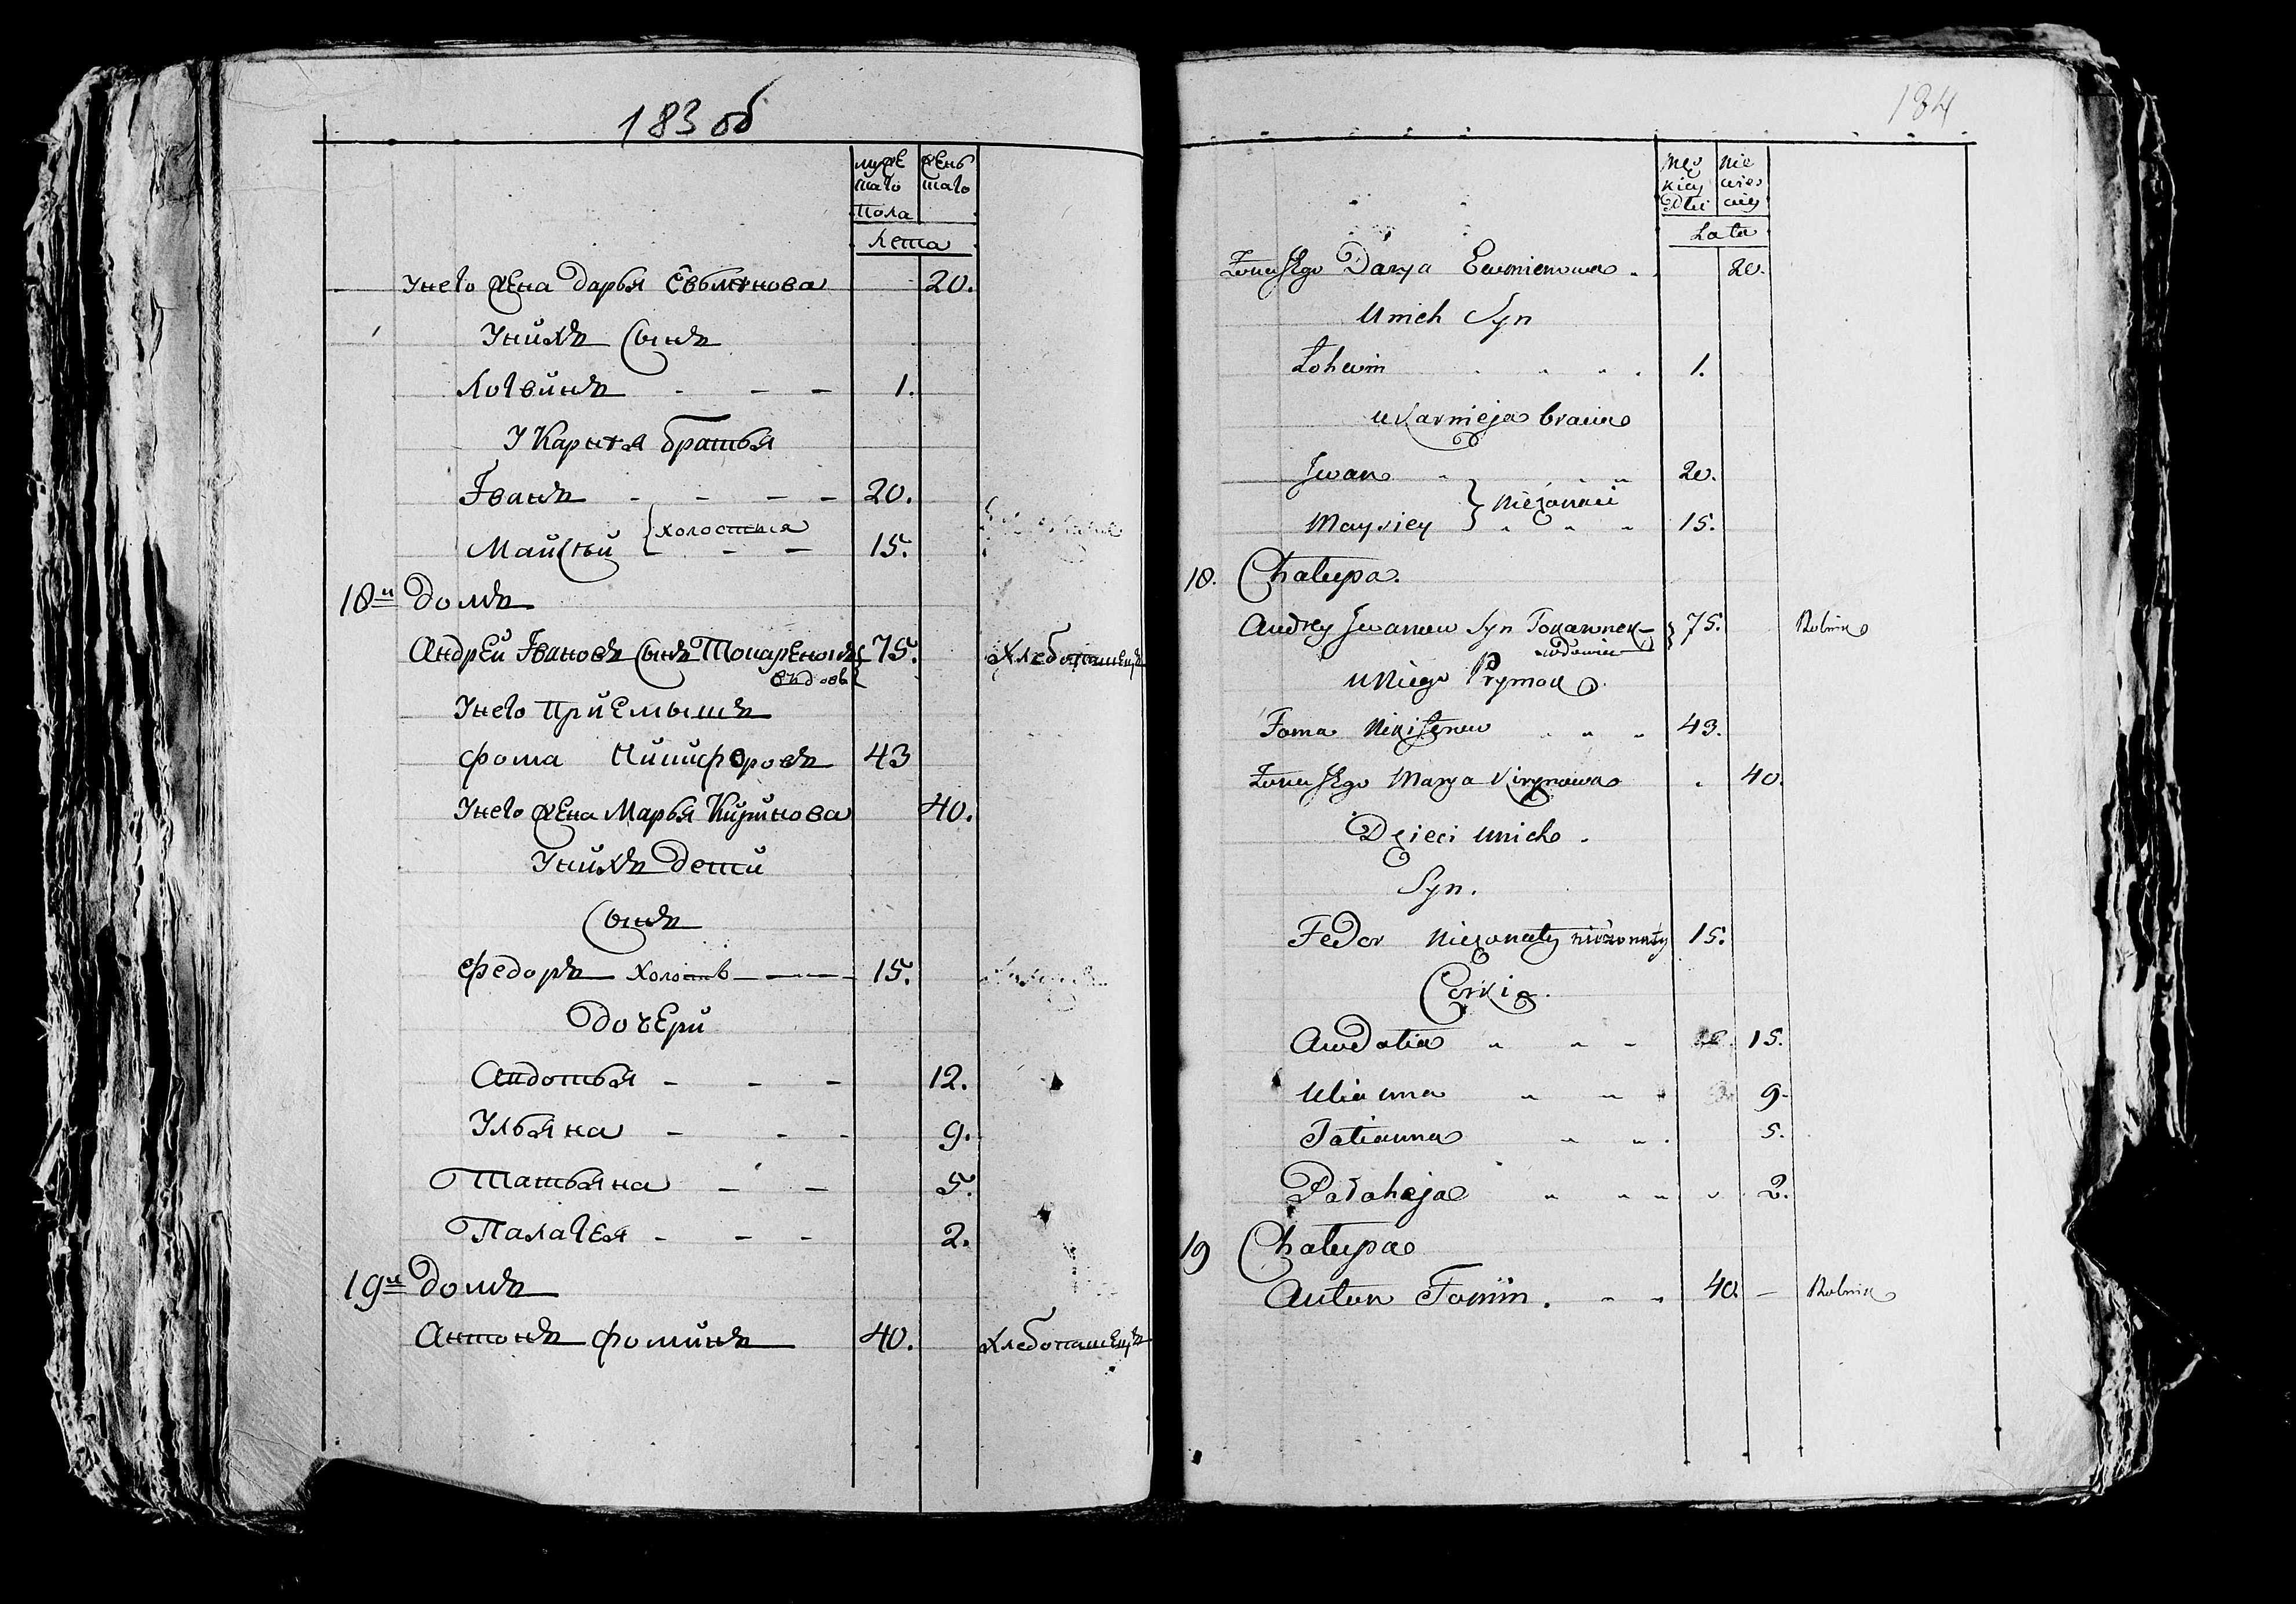 183 об
муже женъ
скаго скаго
пола
Лета
У него жена Дарья Евъменова 20.
У нихъ Сынъ
Логвинъ - - - 1.
У Карнея братья
Іванъ - - - - 20.
{холостыя
Майсѣй - - - 15.
18й домъ
Андрей Івановъ Сынъ Токаренокъ 75. Хлебопашецъ
въдовъ
У него приемышъ
Фома Никифоровъ 43
У него жена Марья Кирилова 40.
У нихъ дети
Сынъ
Федоръ холостъ 15.
Дочери
Авдотья - - - 12.
Ульяна - - - 9.
Татьяна - - 5.
Палагея - - - 2.
19й домъ
Антонъ Фоминъ 40. Хлебопашецъ
184
Męs Nie
kiey wies
Płci ciey
Lata
Żona Jego Darya Ewmienowa 20.
U nich Syn
Łohwin 1.
u Karnieja bracia
Jwan 20.
} Nieżonaci
Maysiey 15.
18. Chałupa.
Andrey Jwanow Syn Tokaronek } 75. Rolnik
wdowiec
U Niego Prymak
Foma Nikiforow 43.
Żona Jego Marya Kiryłowa 40.
Dzieci u nich.
Syn.
Fedor Nieżonaty nieżonaty 15.
Corki
Awdotia 15.
Ulianna 9.
Tatianna 5.
Pałaheja 2.
19 Chałupa
Anton Fomin. 40. Rolnik